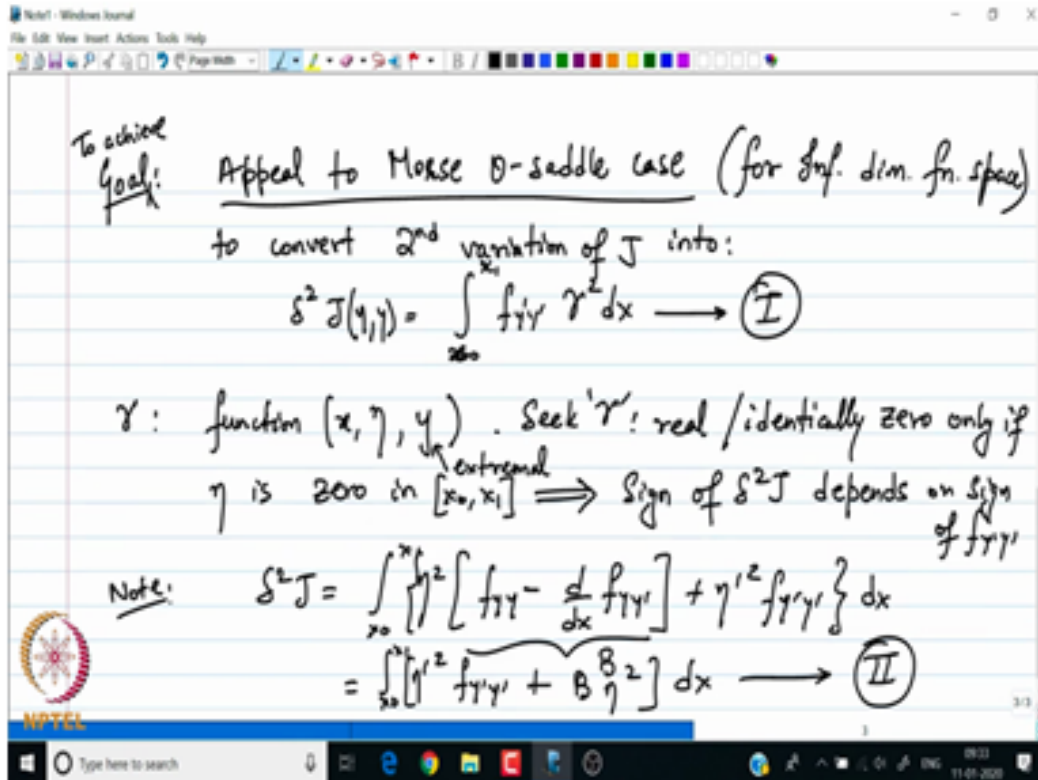 Note1 - Windows Journal
File Edit View Insert Actions Tools Help
Page Width
B I
To achieve
Goal: Appeal to Morse 0-saddle case (for Inf. dim. fn. space)
to convert 2nd variation of J into:
δ² J(η,y) = ∫_{x0}^{x1} fy'y' γ² dx ⟶ I
γ : function (x, η, y) . Seek 'γ' : real / identically zero only if
extremal
η is zero in [x0, x1] ⟹ Sign of δ²J depends on sign
of fy'y'
Note: δ²J = ∫_{x0}^{x1} {η² [fyy - d/dx fyy'] + η'² fy'y'} dx
B
= ∫_{x0}^{x1} [η'² fy'y' + B η²] dx ⟶ II
NPTEL
3/3
3
Type here to search
ENG
09:33
11-01-2020